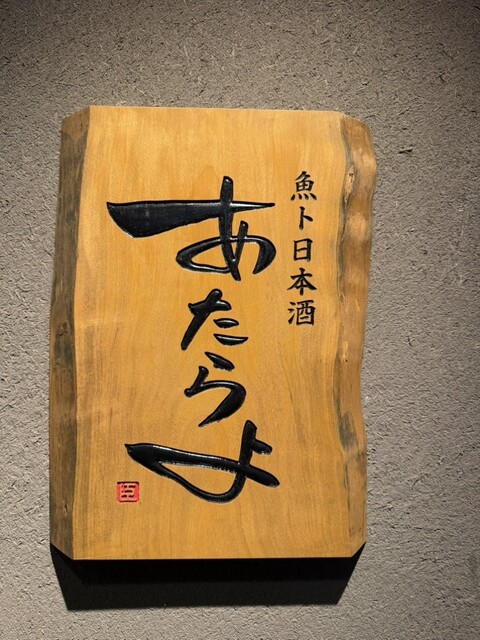 魚ト日本酒
あたらよ